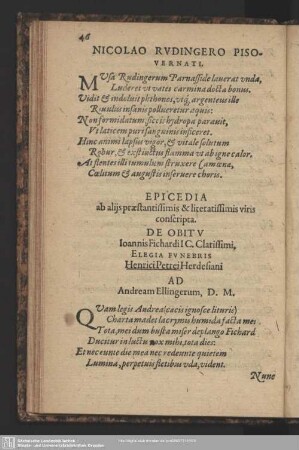 46
NICOLAO RVDINGERO PISO-
VERNATI.
MVsa Rudingerum Parnasside lauerat vnda,
Luderet vt vates carmina docta bonus.
Vidit & indoluit phthonos, vtq; argenteus ille
Riuulus insanis polluerètur aquis:
Non formidatum siccis hydropa parauit,
Vt laticem puri sanguinis inficeret.
Hinc animi lapsus vigor, & vitale solutum
Robur, & exstinctus flamma vt ab igne calor.
At flentes illi tumulum struxere Camœnæ,
Cœlitum & augustis inseruere choris.
EPICEDIA
ab alijs præstantissimis & literatissimis viris
conscripta.
DE OBITV
Ioannis Fichardi IC. Clarissimi,
ELEGIA FVNEBRIS
Henrici Petrei Herdesiani
AD
Andream Ellingerum, D. M.
QVam legis Andrea (cæcis ignosce lituris)
Charta madet lacrymis humida facta meis
Tota, mei dum busta miser deplango Fichard
Ducitur in luctu nox mihi, tota dies.
Et nec eunte die mea nec redeunte quietem
Lumina, perpetuis fletibus vda, vident.
Nunc